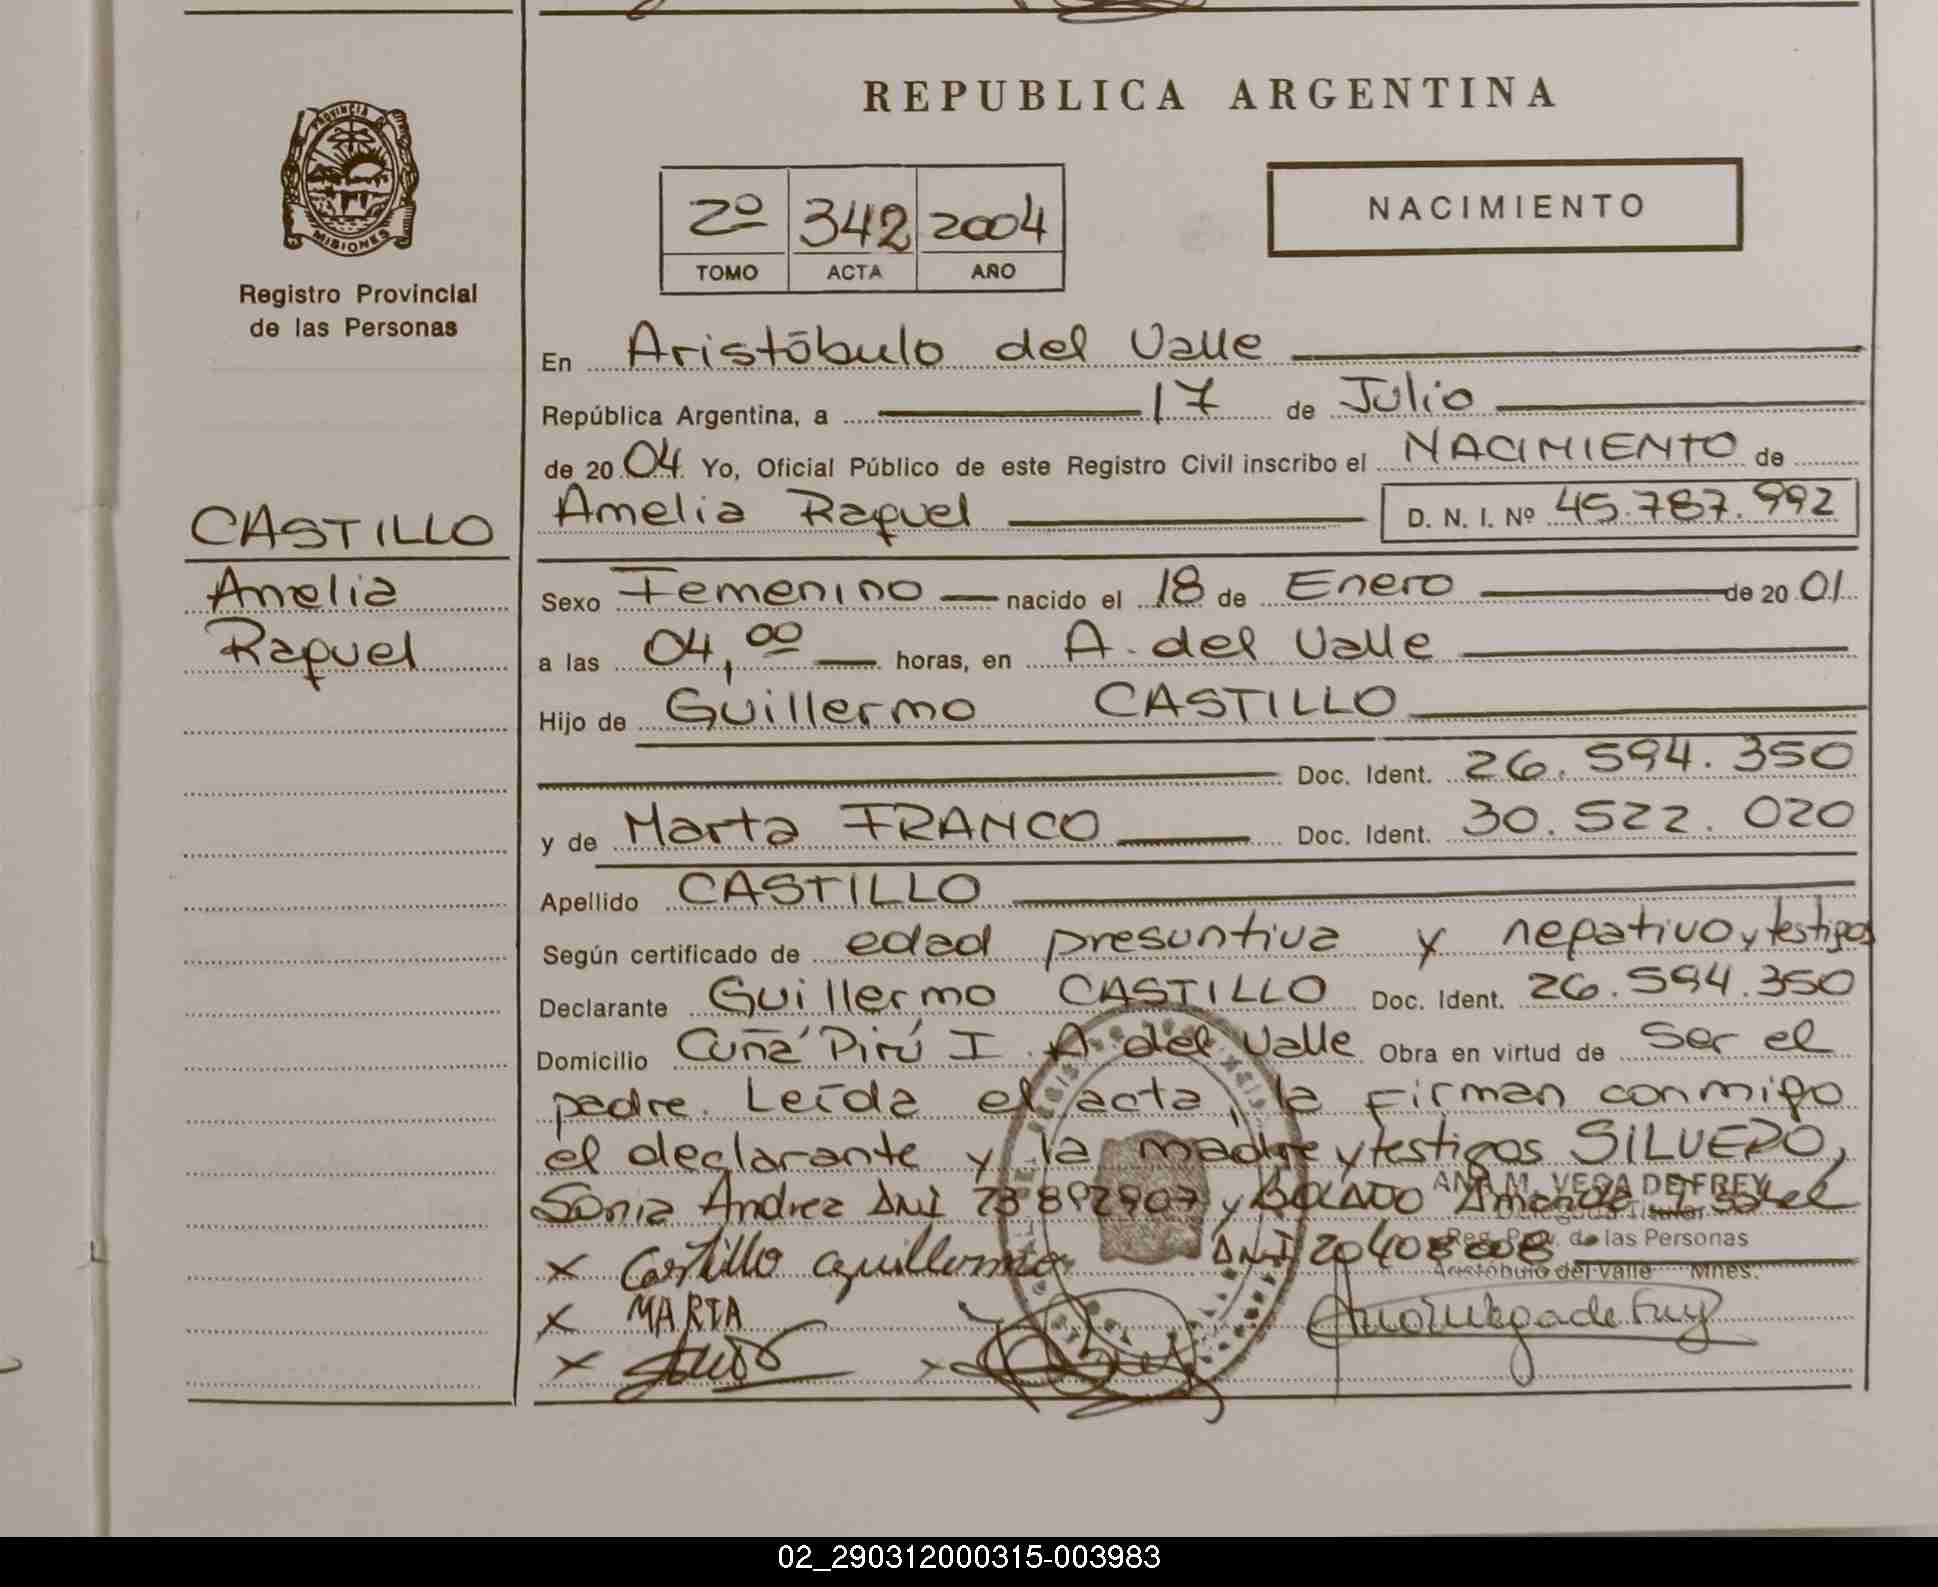 REPUBLICA ARGENTINA
PROVINCIA DE
MISIONES
Registro Provincial
de las Personas
2º 342 2004
TOMO ACTA AÑO
NACIMIENTO
En Aristóbulo del Valle
República Argentina, a 17 de Julio
de 20 04 Yo, Oficial Público de este Registro Civil inscribo el NACIMIENTO de
CASTILLO
Amelia
Raquel
Amelia Raquel D. N. I. Nº 45.787.992
Sexo Femenino nacido el 18 de Enero de 20 01
a las 04,00 horas, en A. del Valle
Hijo de Guillermo CASTILLO
Doc. Ident. 26.594.350
y de Marta FRANCO Doc. Ident. 30.522.020
Apellido CASTILLO
Según certificado de edad presuntiva y negativo y testigos
Declarante Guillermo CASTILLO Doc. Ident. 26.594.350
Domicilio Cuña Pirú I A. del Valle Obra en virtud de ser el
padre. Leída el acta, la firman conmigo
el declarante y la madre y testigos SILVERO,
Sonia Andrea DNI y Amanda Isabel
ANA M. VEGA DE FREY
Delegada Titular
Reg. Prov. de las Personas
Aristóbulo del Valle Mnes.
x Castillo guillermo DNI
x MARTA
x
02_290312000315-003983